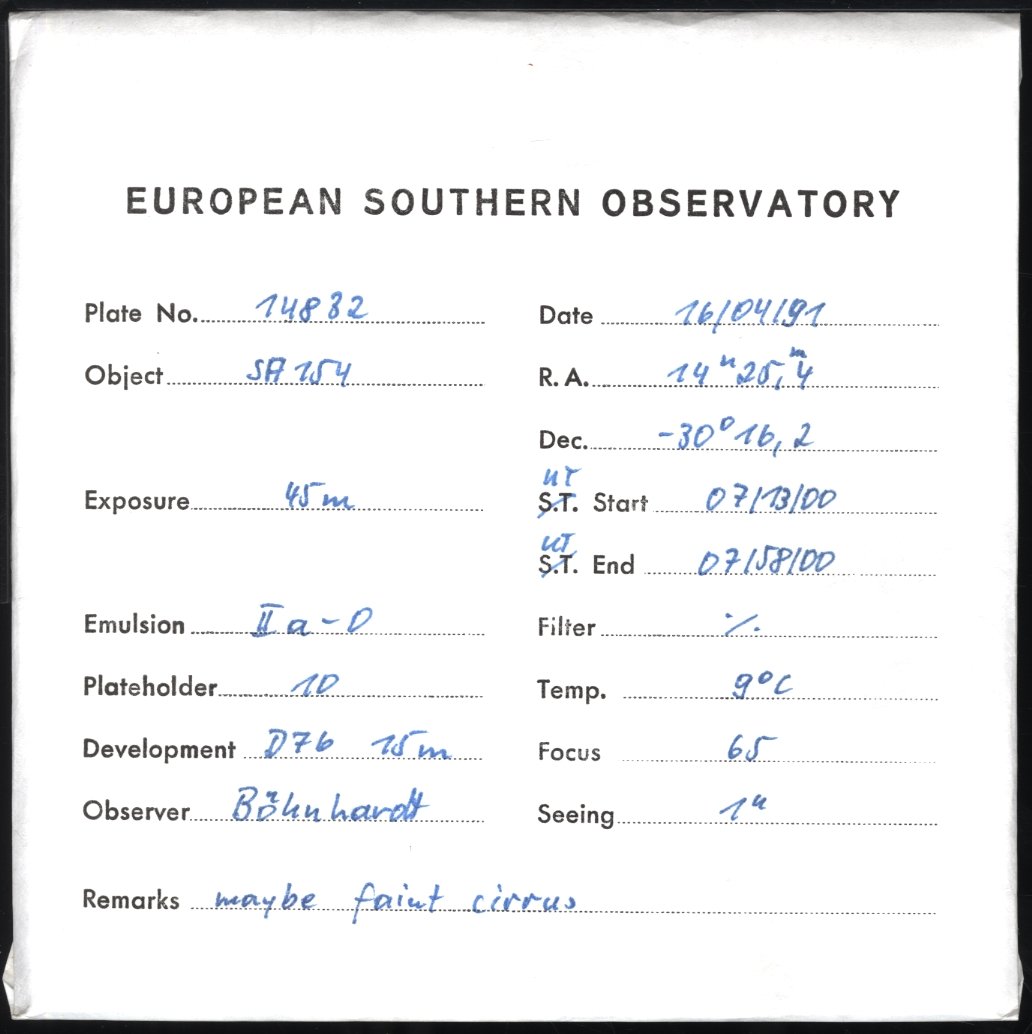 EUROPEAN SOUTHERN OBSERVATORY
Plate No. 14832 Date 16/04/91
Object SA 154 R. A. 14h 25,m4
Dec. -30° 16,2
UT
Exposure 45m S.T. Start 07/13/00
UT
S.T. End 07/58/00
Emulsion IIa-O Filter ./.
Plateholder 10 Temp. 9°C
Development D76 15m Focus 65
Observer Böhnhardt Seeing 1"
Remarks maybe faint cirrus